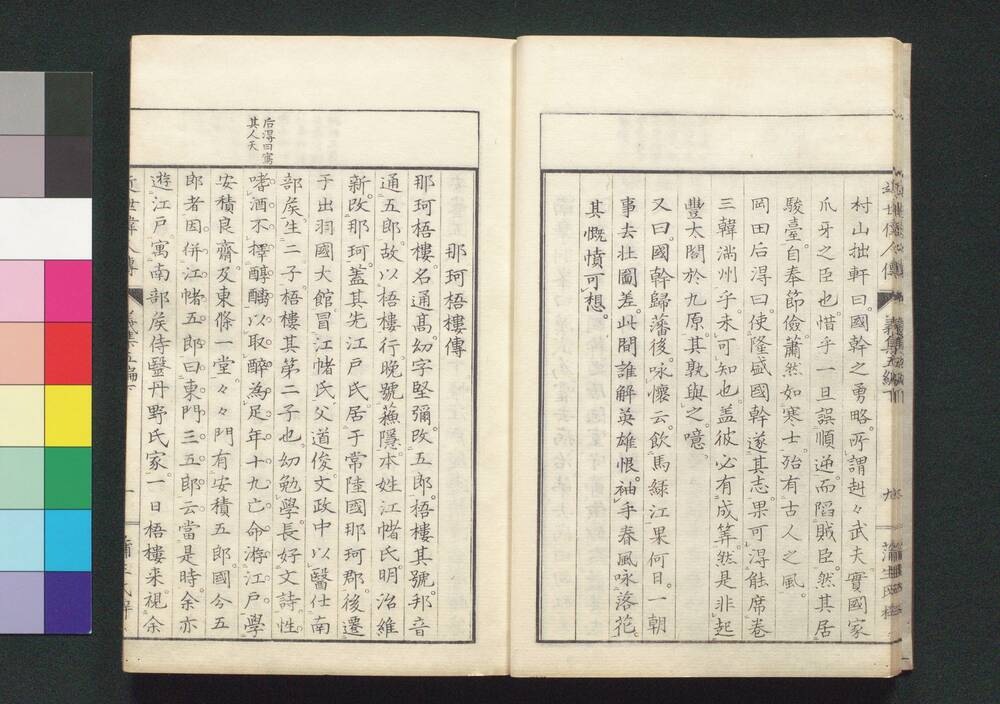 村山拙軒曰。國幹之勇略。所謂赳々武夫。實國家
爪牙之臣也。惜乎一旦誤順逆。而陷賊臣。然其居
駿臺。自奉節儉。蕭然如寒士。殆有古人之風。
岡田后淂曰。使隆盛國幹遂其志。果可淂能席卷
三韓滿州乎。未可知也。盖彼必有成筭。然是非起
豐太閤於九原。其孰與之。噫。
又曰。國幹歸藩後。咏懷云。飲馬綠江果何日。一朝
事去壯圖差。此間誰解英雄恨。袖手春風咏落花。
其慨憤可想。
那珂梧樓傳
那珂梧樓。名通髙。幼字堅彌。改五郎。梧樓其號。邦音
通五郎。故以梧樓行。晚號蘓隱。本姓江幡氏。明治維
新。改那珂。蓋其先江戸氏。居于常陸國那珂郡。後遷
于出羽國大館。冒江幡氏。父道俊。文政中以醫仕南
部矦。生二子。梧樓其第二子也。幼勉學。長好文詩。性
嗜酒。不擇醇醨。以取醉為足。年十九亡命。游江戸。學
安積艮齋及東條一堂。一堂々門有安積五郎。國分五
郎者。因併江幡五郎曰。東門三五郎云。當是時。余亦
遊江戸。寓南部矦侍醫丹野氏家。一日梧樓来視余
后淂曰寫
其人夭
近世偉人傳
義集五編